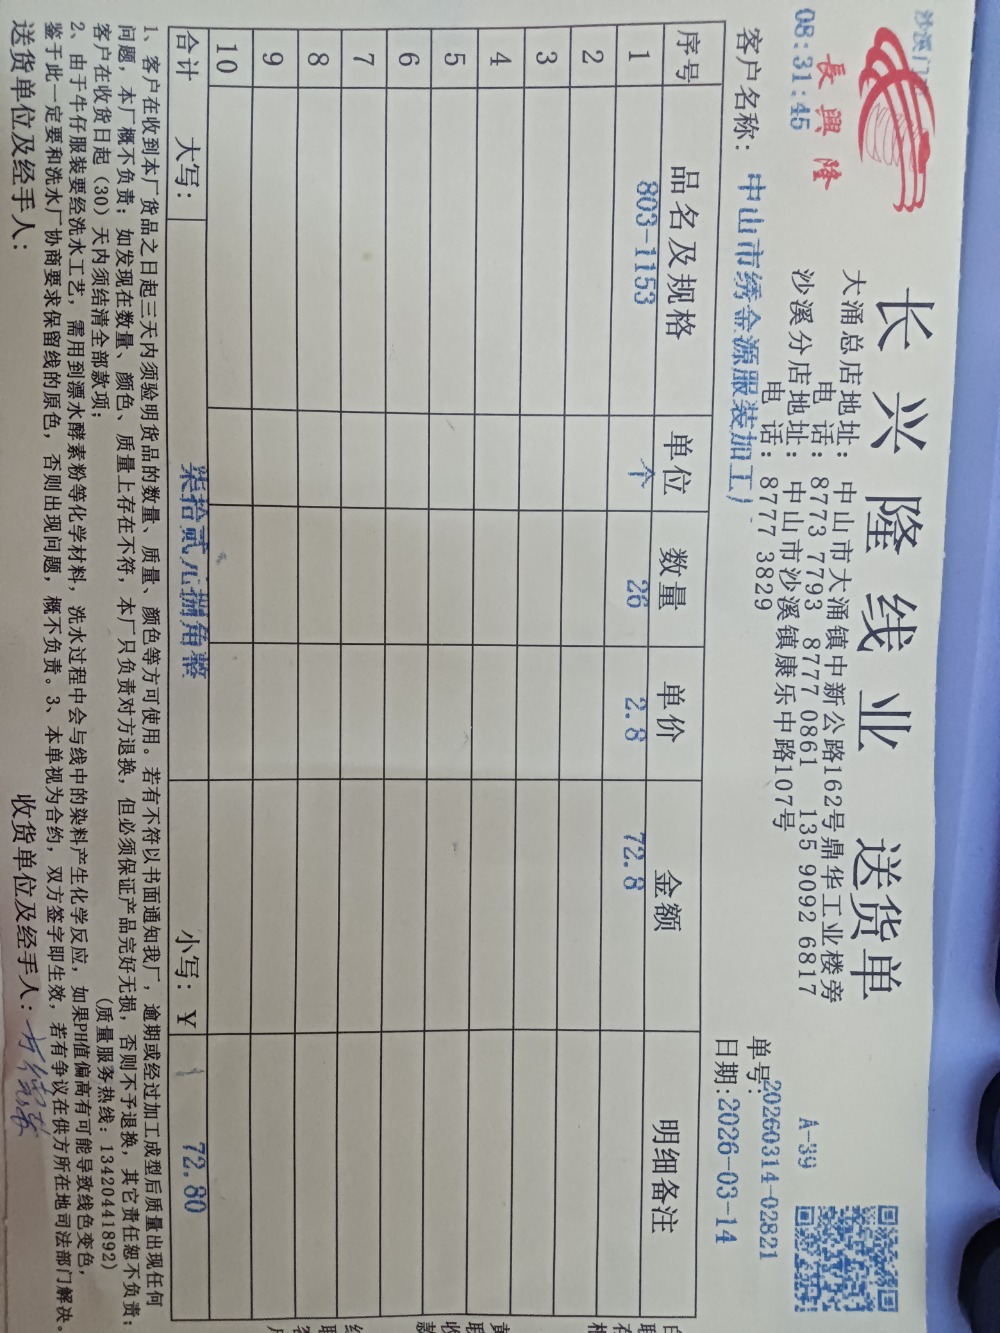 沙溪门
08:31:45
長興隆
长兴隆线业 送货单
大涌总店地址: 中山市大涌镇中新公路162号鼎华工业楼旁
电 话: 8773 7793 8777 0861 135 9092 6817
沙溪分店地址: 中山市沙溪镇康乐中路107号
电 话: 8777 3829
A-39
单号: 20260314-02821
客户名称: 中山市绣金源服装加工厂
日期: 2026-03-14
序号 品名及规格 单位 数量 单价 金额 明细备注
1 803-1153 个 26 2.8 72.8
2
3
4
5
6
7
8
9
10
合计 大写: 柒拾贰元捌角整 小写: ¥ 72.80
1、客户在收到本厂货品之日起三天内须验明货品的数量、质量、颜色等方可使用。若有不符以书面通知我厂，逾期或经过加工成型后质量出现任何
问题，本厂概不负责；如发现在数量、颜色、质量上存在不符，本厂只负责对方退换，但必须保证产品完好无损，否则不予退换，其它责任恕不负责；
客户在收货日起（30）天内须结清全部款项； (质量服务热线: 13420441892)
2、由于牛仔服装要经洗水工艺，需用到漂水酵素粉等化学材料，洗水过程中会与线中的染料产生化学反应，如果PH值偏高有可能导致线色变色，
鉴于此一定要和洗水厂协商要求保留线的原色，否则出现问题，概不负责。3、本单视为合约，双方签字即生效，若有争议在供方所在地司法部门解决。
送货单位及经手人: 收货单位及经手人: